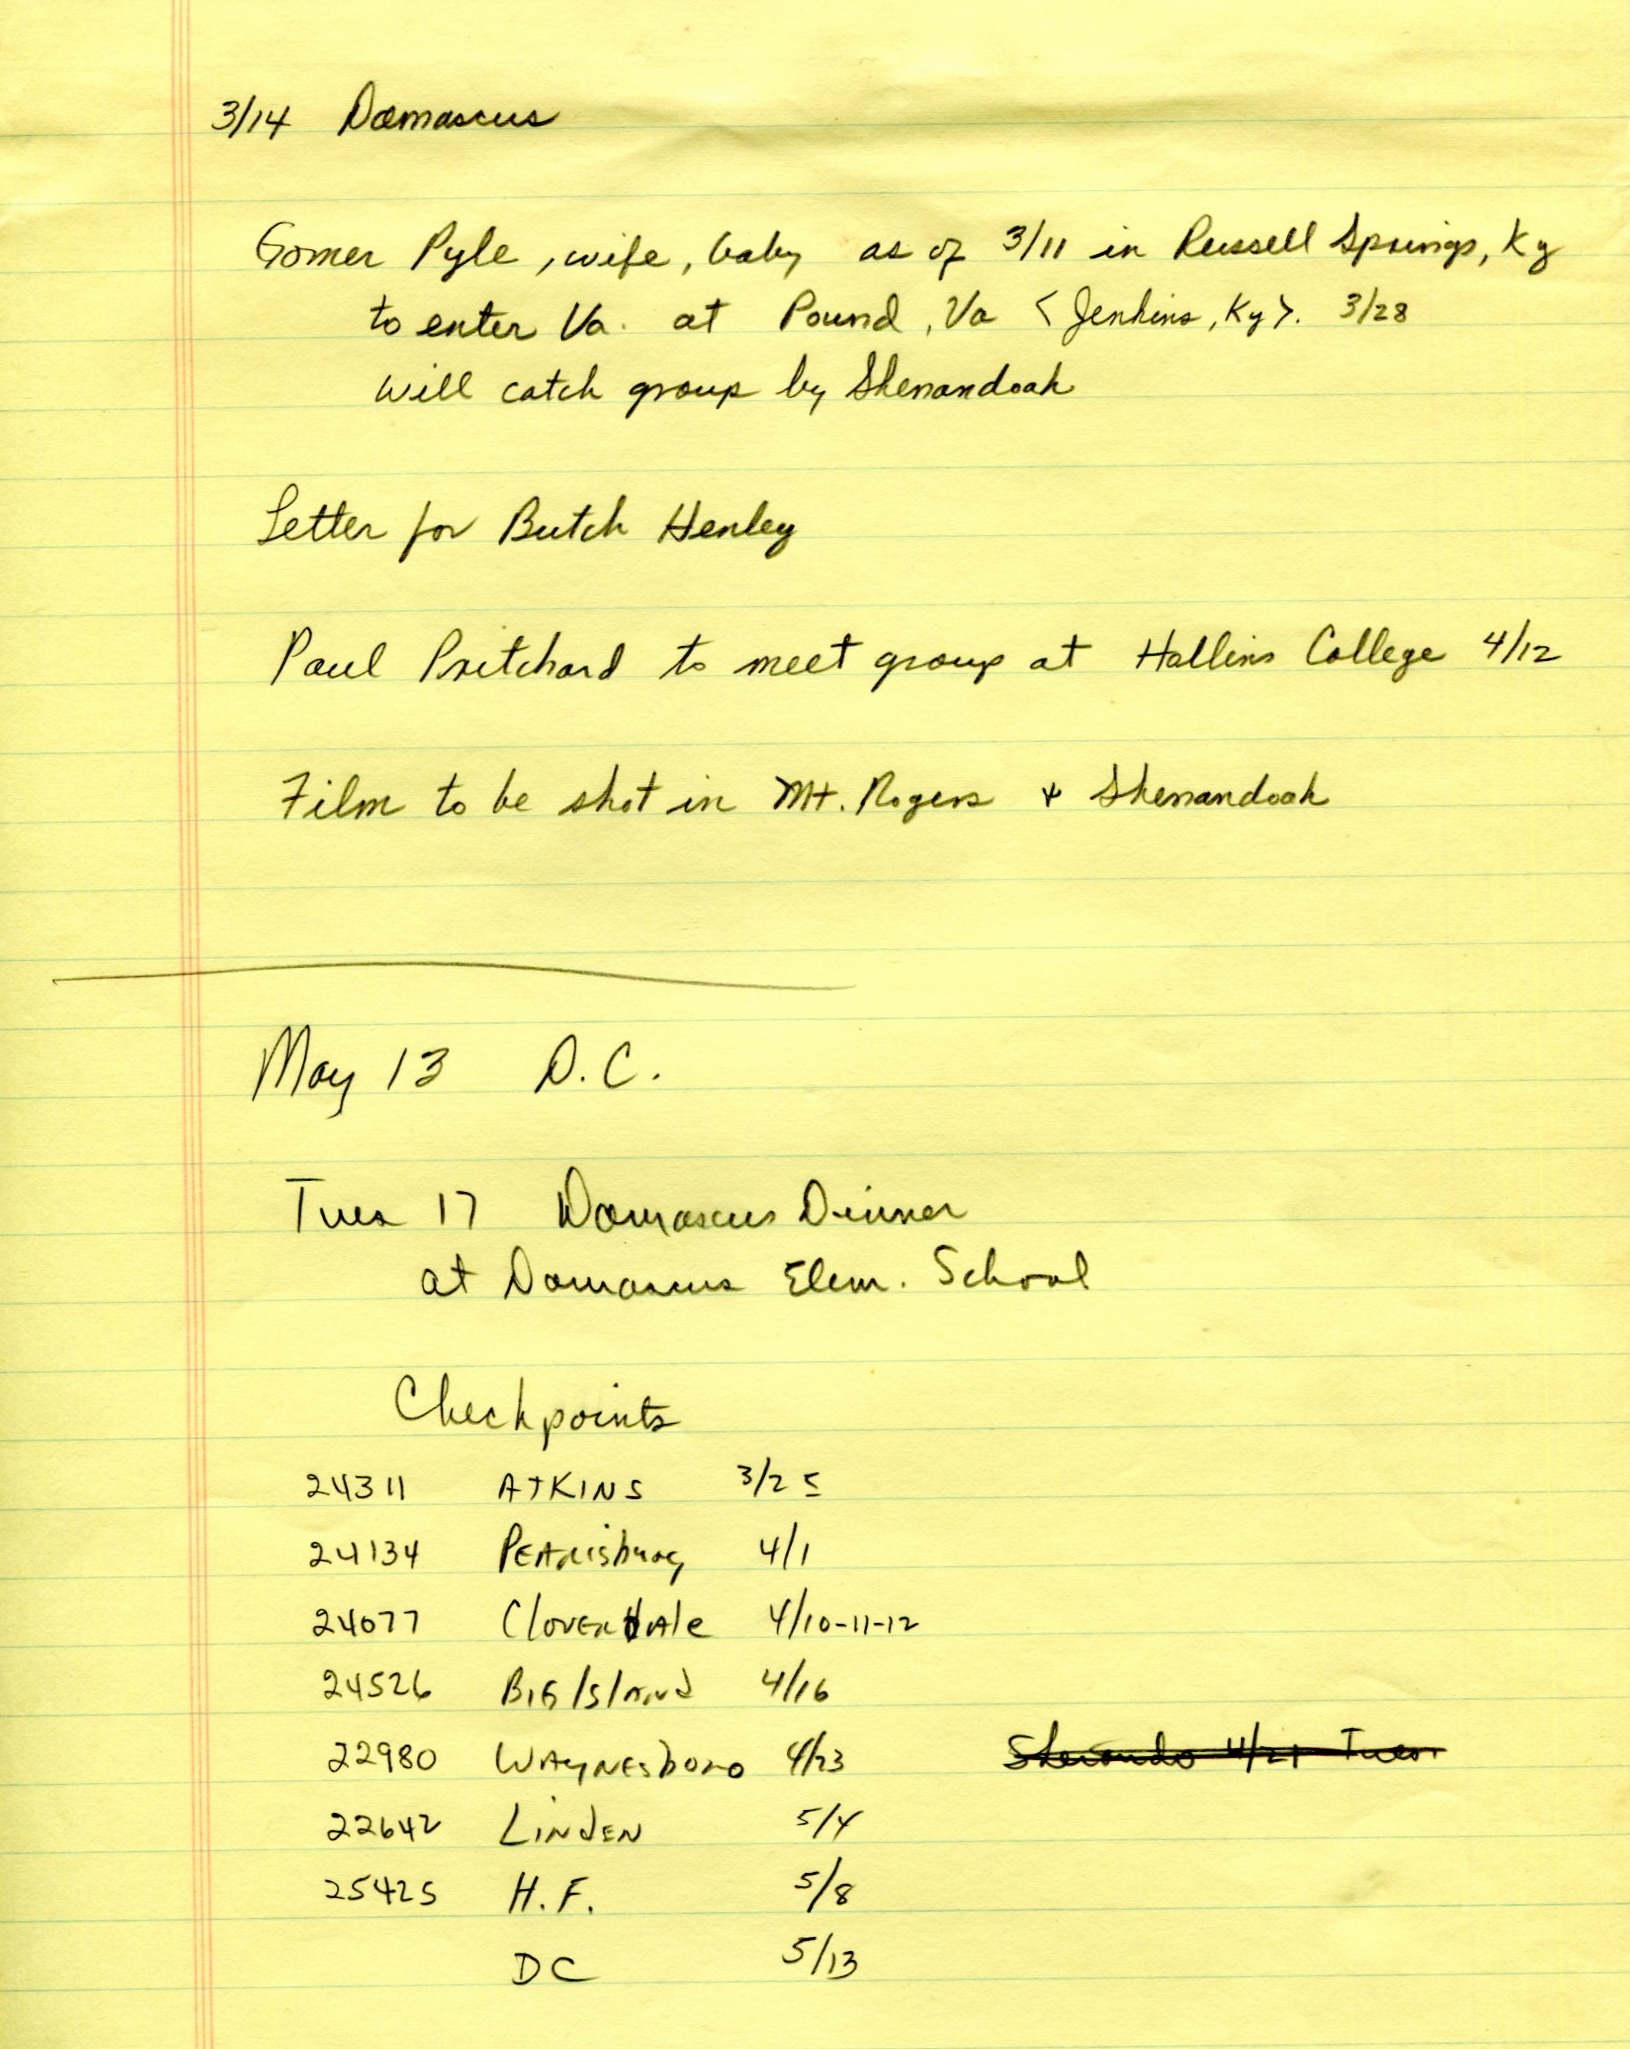 3/14 Damascus
Gomer Pyle, wife, baby as of 3/11 in Russell Springs, Ky
to enter Va. at Pound, Va <Jenkins, Ky>. 3/28
will catch group by Shenandoah
Letter for Butch Henley
Paul Pritchard to meet group at Hollins College 4/12
Film to be shot in Mt. Rogers & Shenandoah
May 13 D.C.
Tues 17 Damascus Dinner
at Damascus Elem. School
Checkpoints
24311 ATKINS 3/25
24134 PEArisburg 4/1
24077 CloverdAle 4/10-11-12
24526 BIG ISlANd 4/16
22980 WAyNEsboro 4/23 Sherando 4/21 Tues.
22642 LiNdEN 5/4
25425 H.F. 5/8
DC 5/13